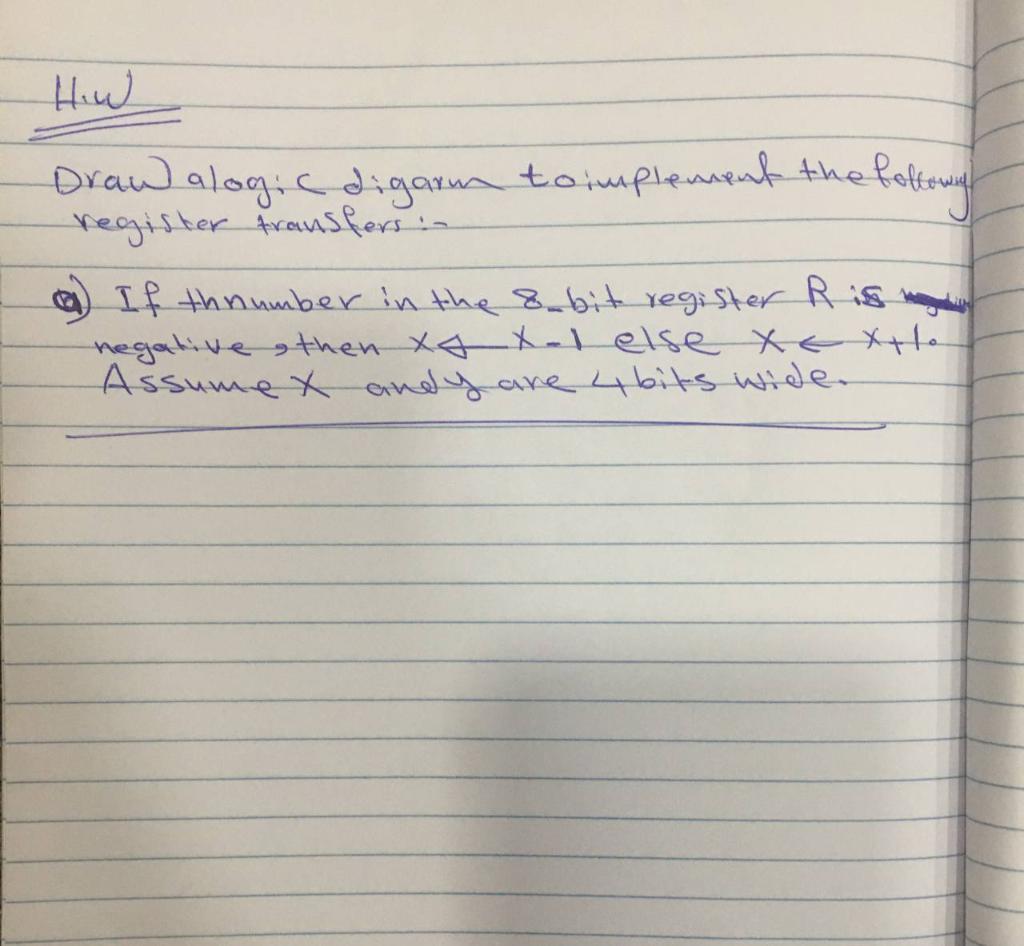 H.W
Draw alogic digarm to implement the following
register transfers :-
a) If thnumber in the 8-bit register R is
negative, then X ← X-1 else X ← X+1.
Assume X and y are 4 bits wide.